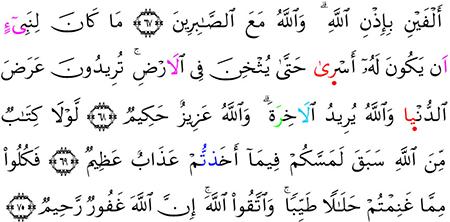 أَلْفَيْنِ بِإِذْنِ اللَّهِ ۗ وَاللَّهُ مَعَ الصَّٰبِرِينَ ٦٧ مَا كَانَ لِنَبِىٓءٍ
اَن يَكُونَ لَهُۥٓ أَسْرىٰ حَتَّىٰ يُثْخِنَ فِى الَارْضِ ۚ تُرِيدُونَ عَرَضَ
الدُّنْيا وَاللَّهُ يُرِيدُ الَاخِرَةَ ۗ وَاللَّهُ عَزِيزٌ حَكِيمٌ ٦٨ لَّوْلَا كِتَٰبٌ
مِّنَ اللَّهِ سَبَقَ لَمَسَّكُمْ فِيمَآ أَخَذتُّمْ عَذَابٌ عَظِيمٌ ٦٩ فَكُلُوا۟
مِمَّا غَنِمْتُمْ حَلَٰلًا طَيِّبًا ۚ وَاتَّقُوا۟ اللَّهَ ۚ إِنَّ اللَّهَ غَفُورٌ رَّحِيمٌ ٧٠